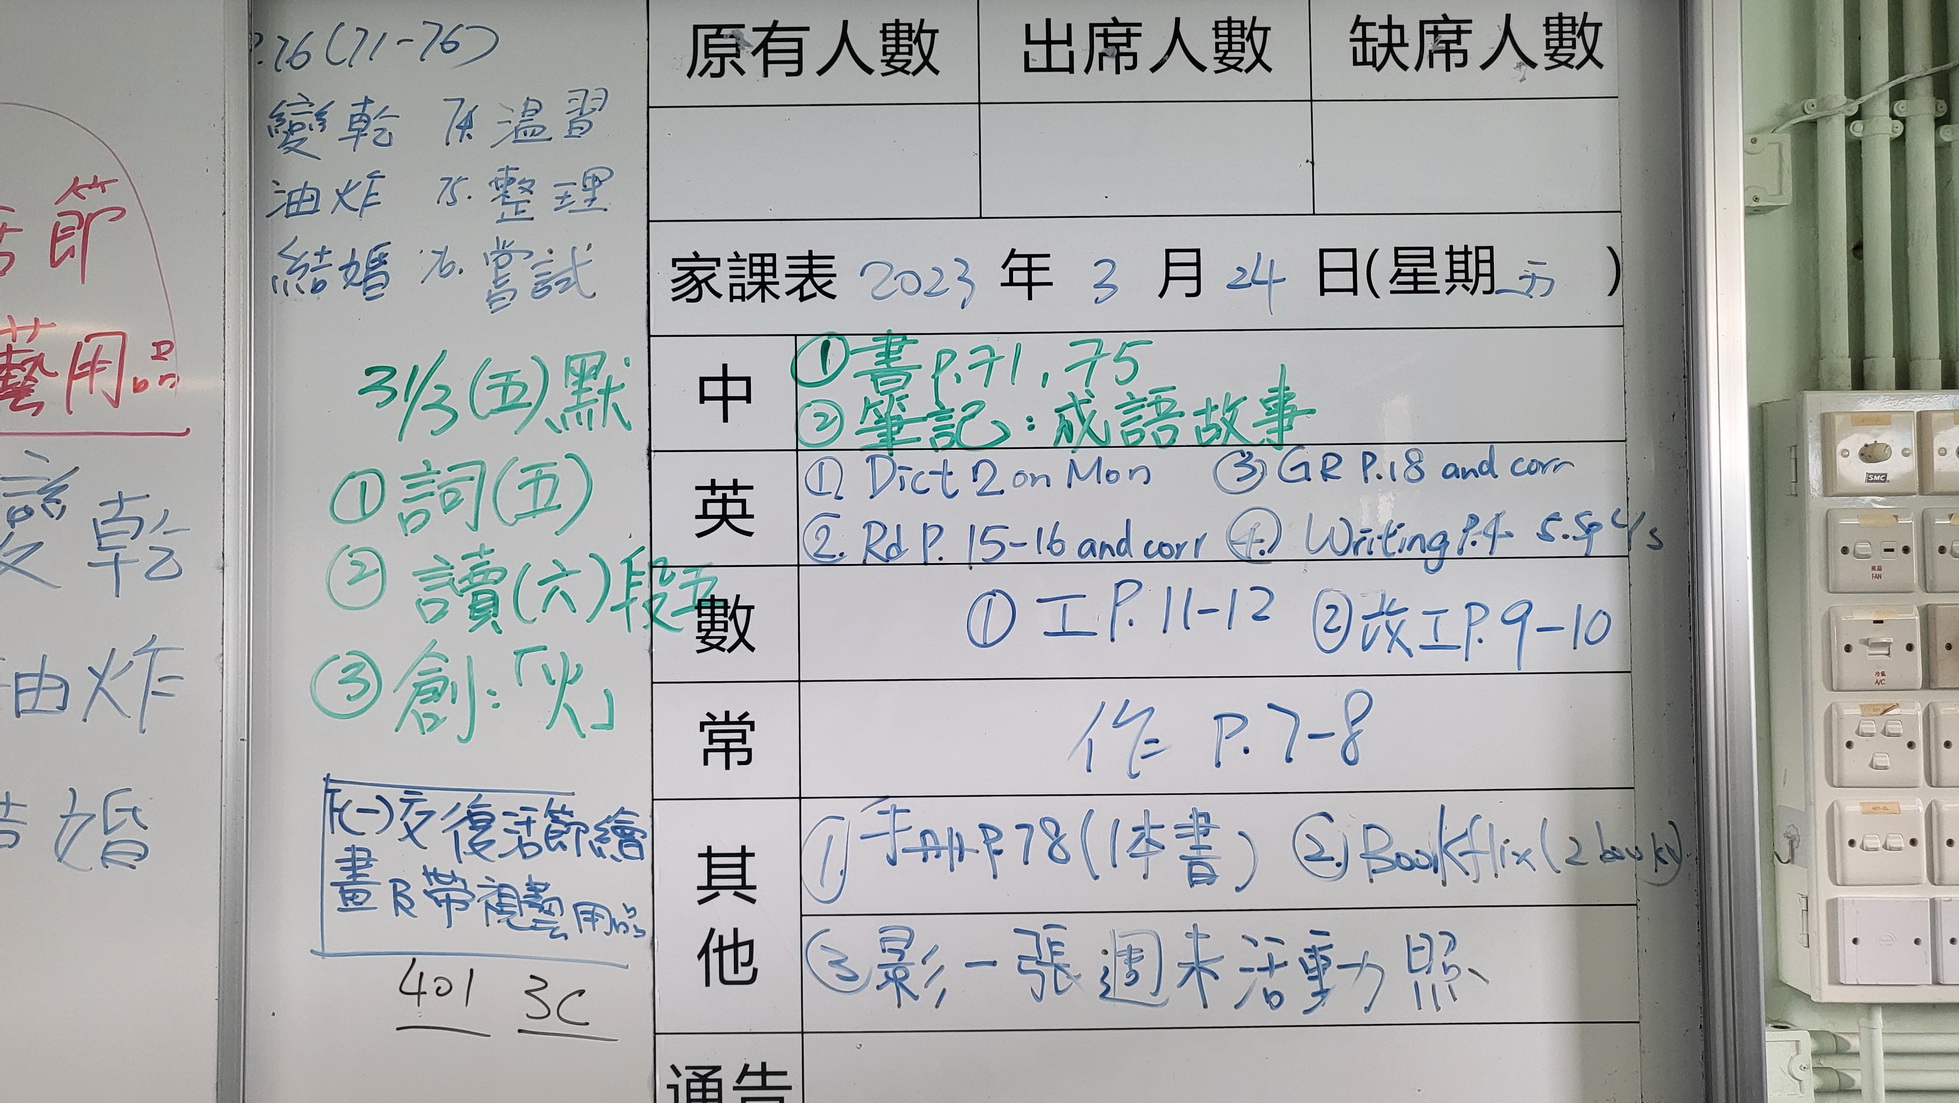 活節
藝用品
變乾
油炸
結婚
P.76(71-76)
變乾 74. 溫習
油炸 75. 整理
結婚 76. 嘗試
31/3(五)默
①詞(五)
②讀(六)段五
③創:「火」
下(一)交復活節繪
畫及帶視藝用品
401 3C
原有人數 出席人數 缺席人數
家課表 2023 年 3 月 24 日(星期 五 )
中 ①書P.71, 75
②筆記:成語故事
英 ① Dict 2 on Mon ③ GR P.18 and corr
②. Rd P. 15-16 and corr ④ Writing P.4
數 ① 工P.11-12 ②改工P.9-10
常 作 P.7-8
其他 ①手冊P.78(1本書) ②Bookflix(2 books)
③影一張週末活動照
通告
SMC
FAN
冷氣
A/C